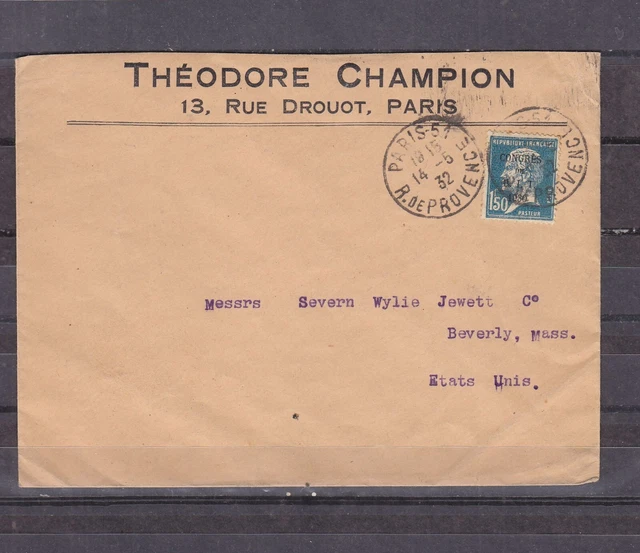 THÉODORE CHAMPION
13, RUE DROUOT, PARIS
PARIS-51
18 15
14 -5
32
R. DE PROVENCE
RÉPUBLIQUE-FRANÇAISE
CONGRÈS
1F50
PASTEUR
Messrs Severn Wylie Jewett Co
Beverly, Mass.
Etats Unis.